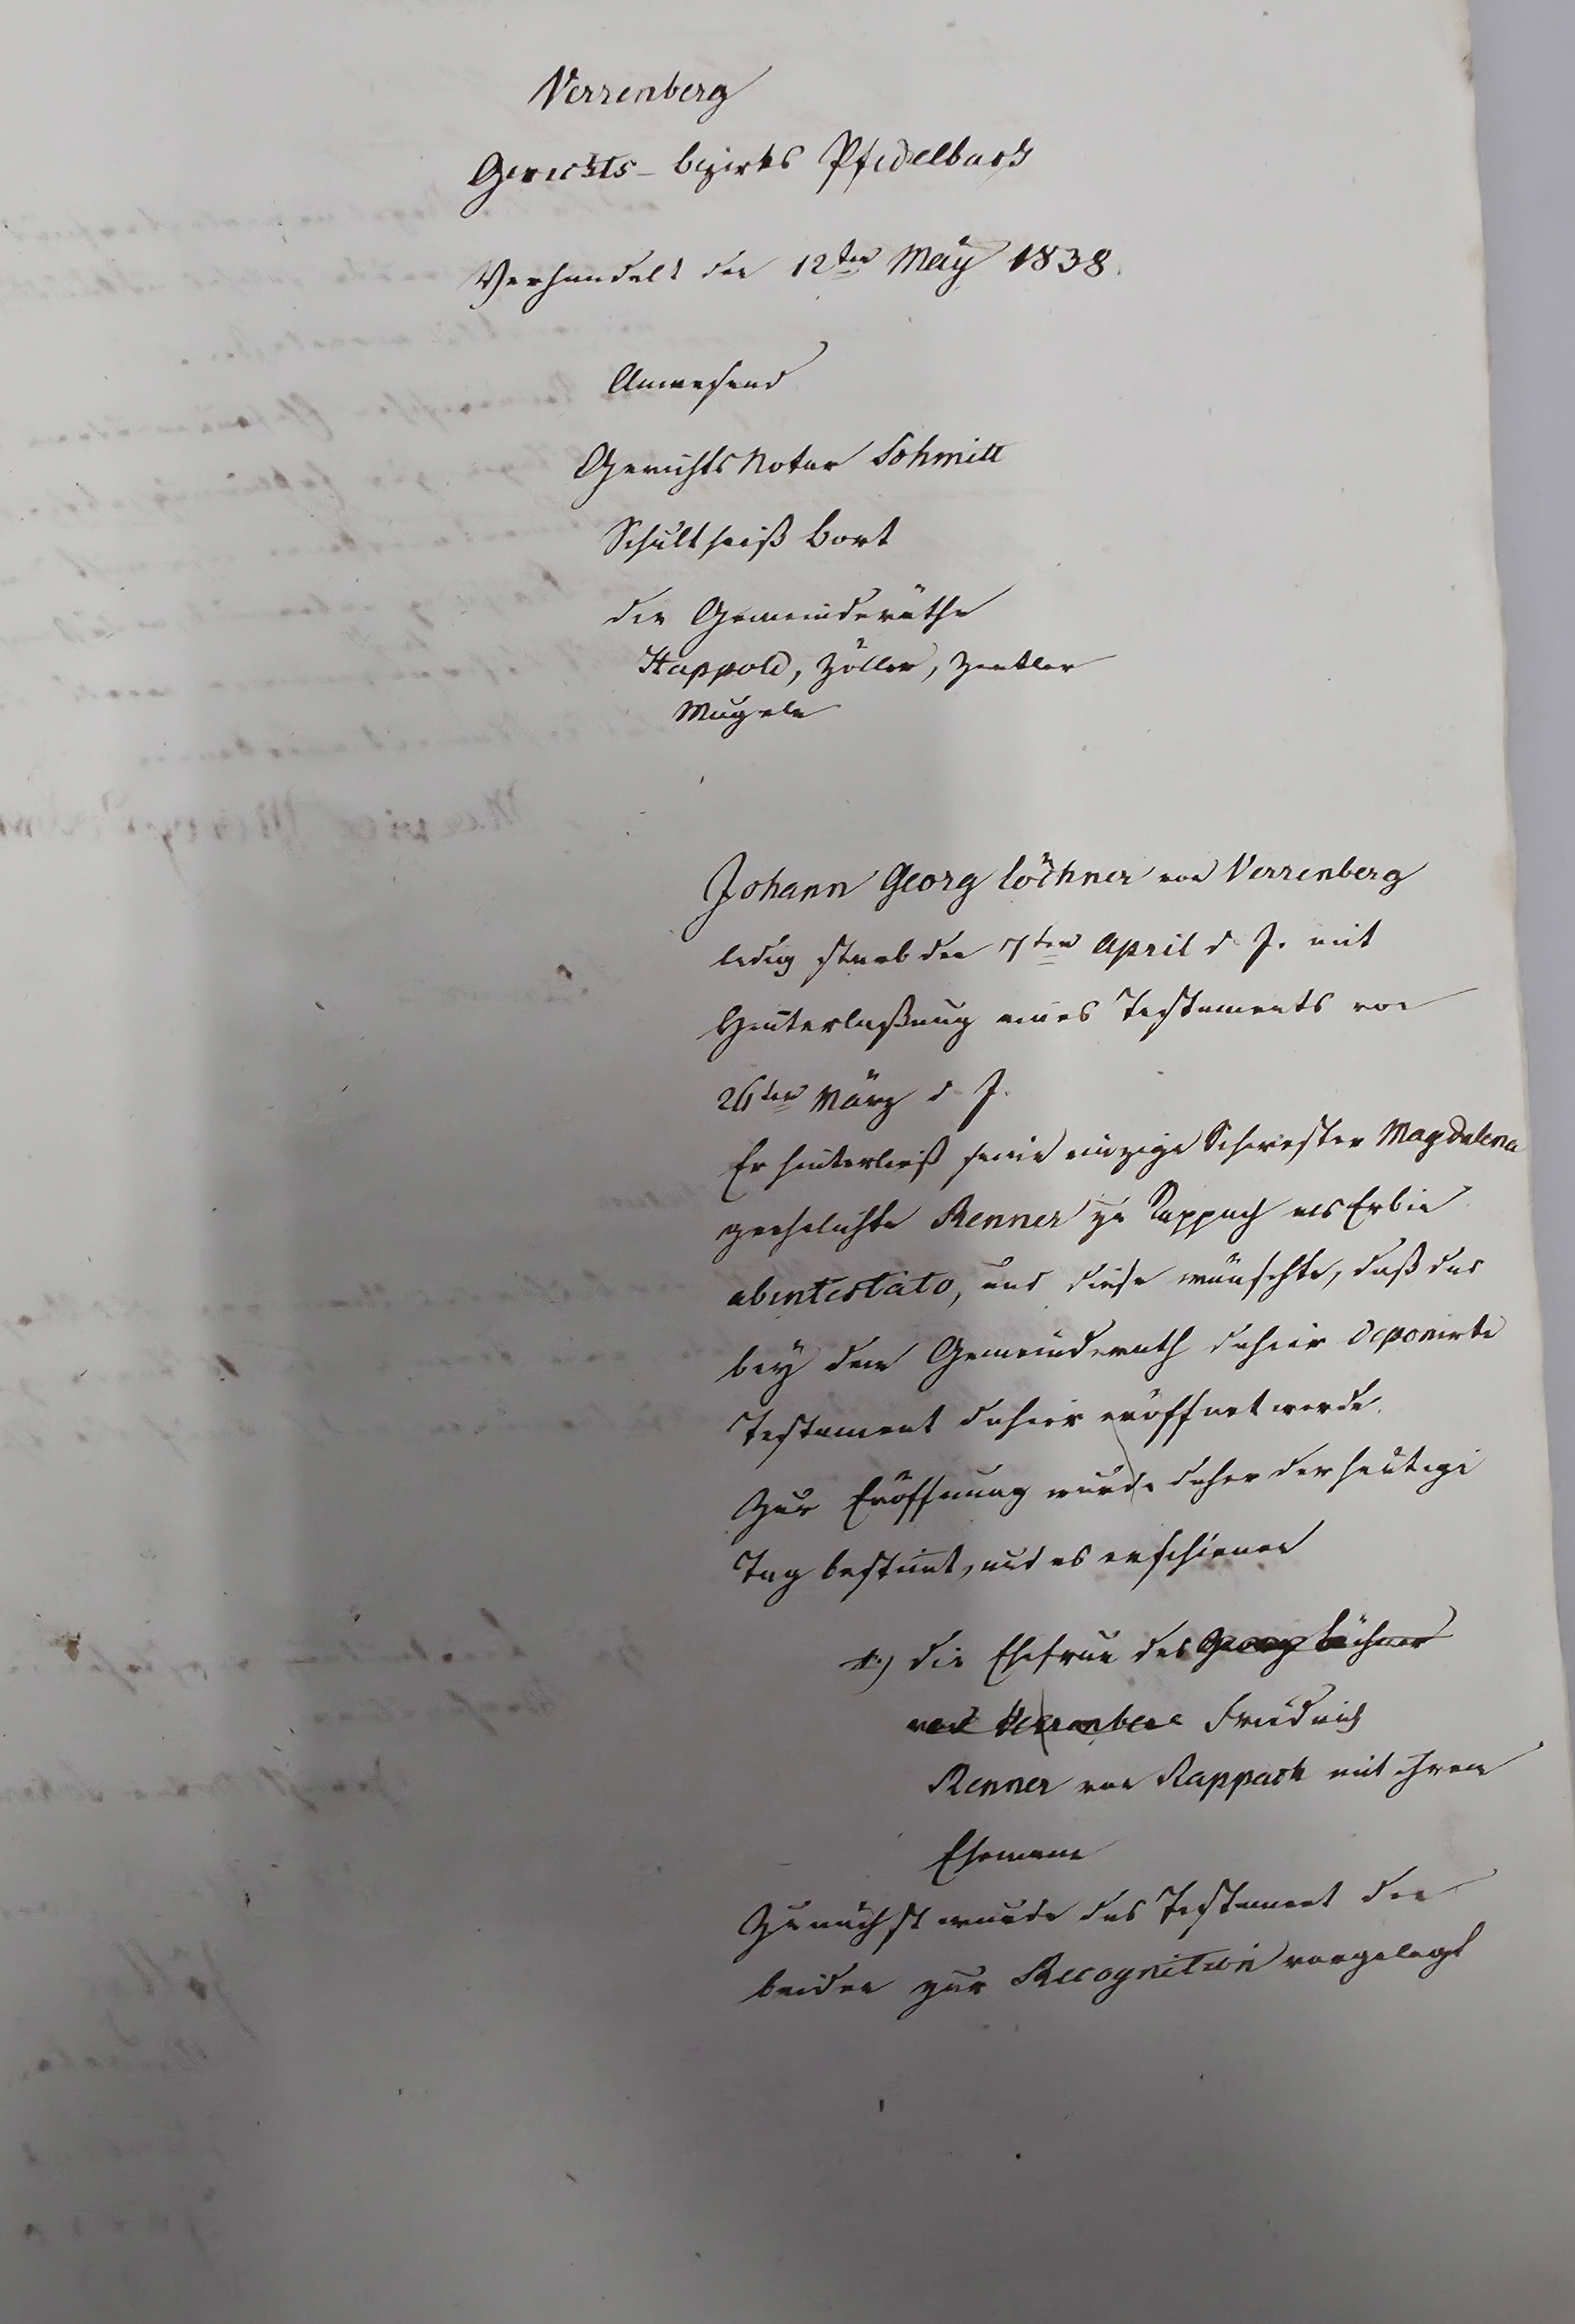 Verrenberg
Gerichts-bezirks Pfedelbach
Verhandelt den 12ten May 1838.
Anwesend
Gerichts Notar Schmitt
Schultheiß Bort
die Gemeinderäthe
Happold, Zöller, Zentler
Mugele
Johann Georg Löchner von Verrenberg
ledig starb den 7ten April d. J. mit
Hinterlaßung eines Testaments von
26ten März d. J.
Er hinterließ seine einzige Schwester Magdalena
geehelichte Renner zu Rappach als Erbin
abintestato, und diese wünschte, daß das
bey dem Gemeinderath dahier deponirte
Testament dahier eröffnet werde.
Zur Eröffnung wurde daher der heutige
Tag bestimt, und es erschienen
1.) die Ehefrau des Georg Löchner
von Verrenberg Friedrich
Renner von Rappach mit ihrem
Ehemann
Zunächst wurde das Testament den
beiden zur Recognition vorgelegt